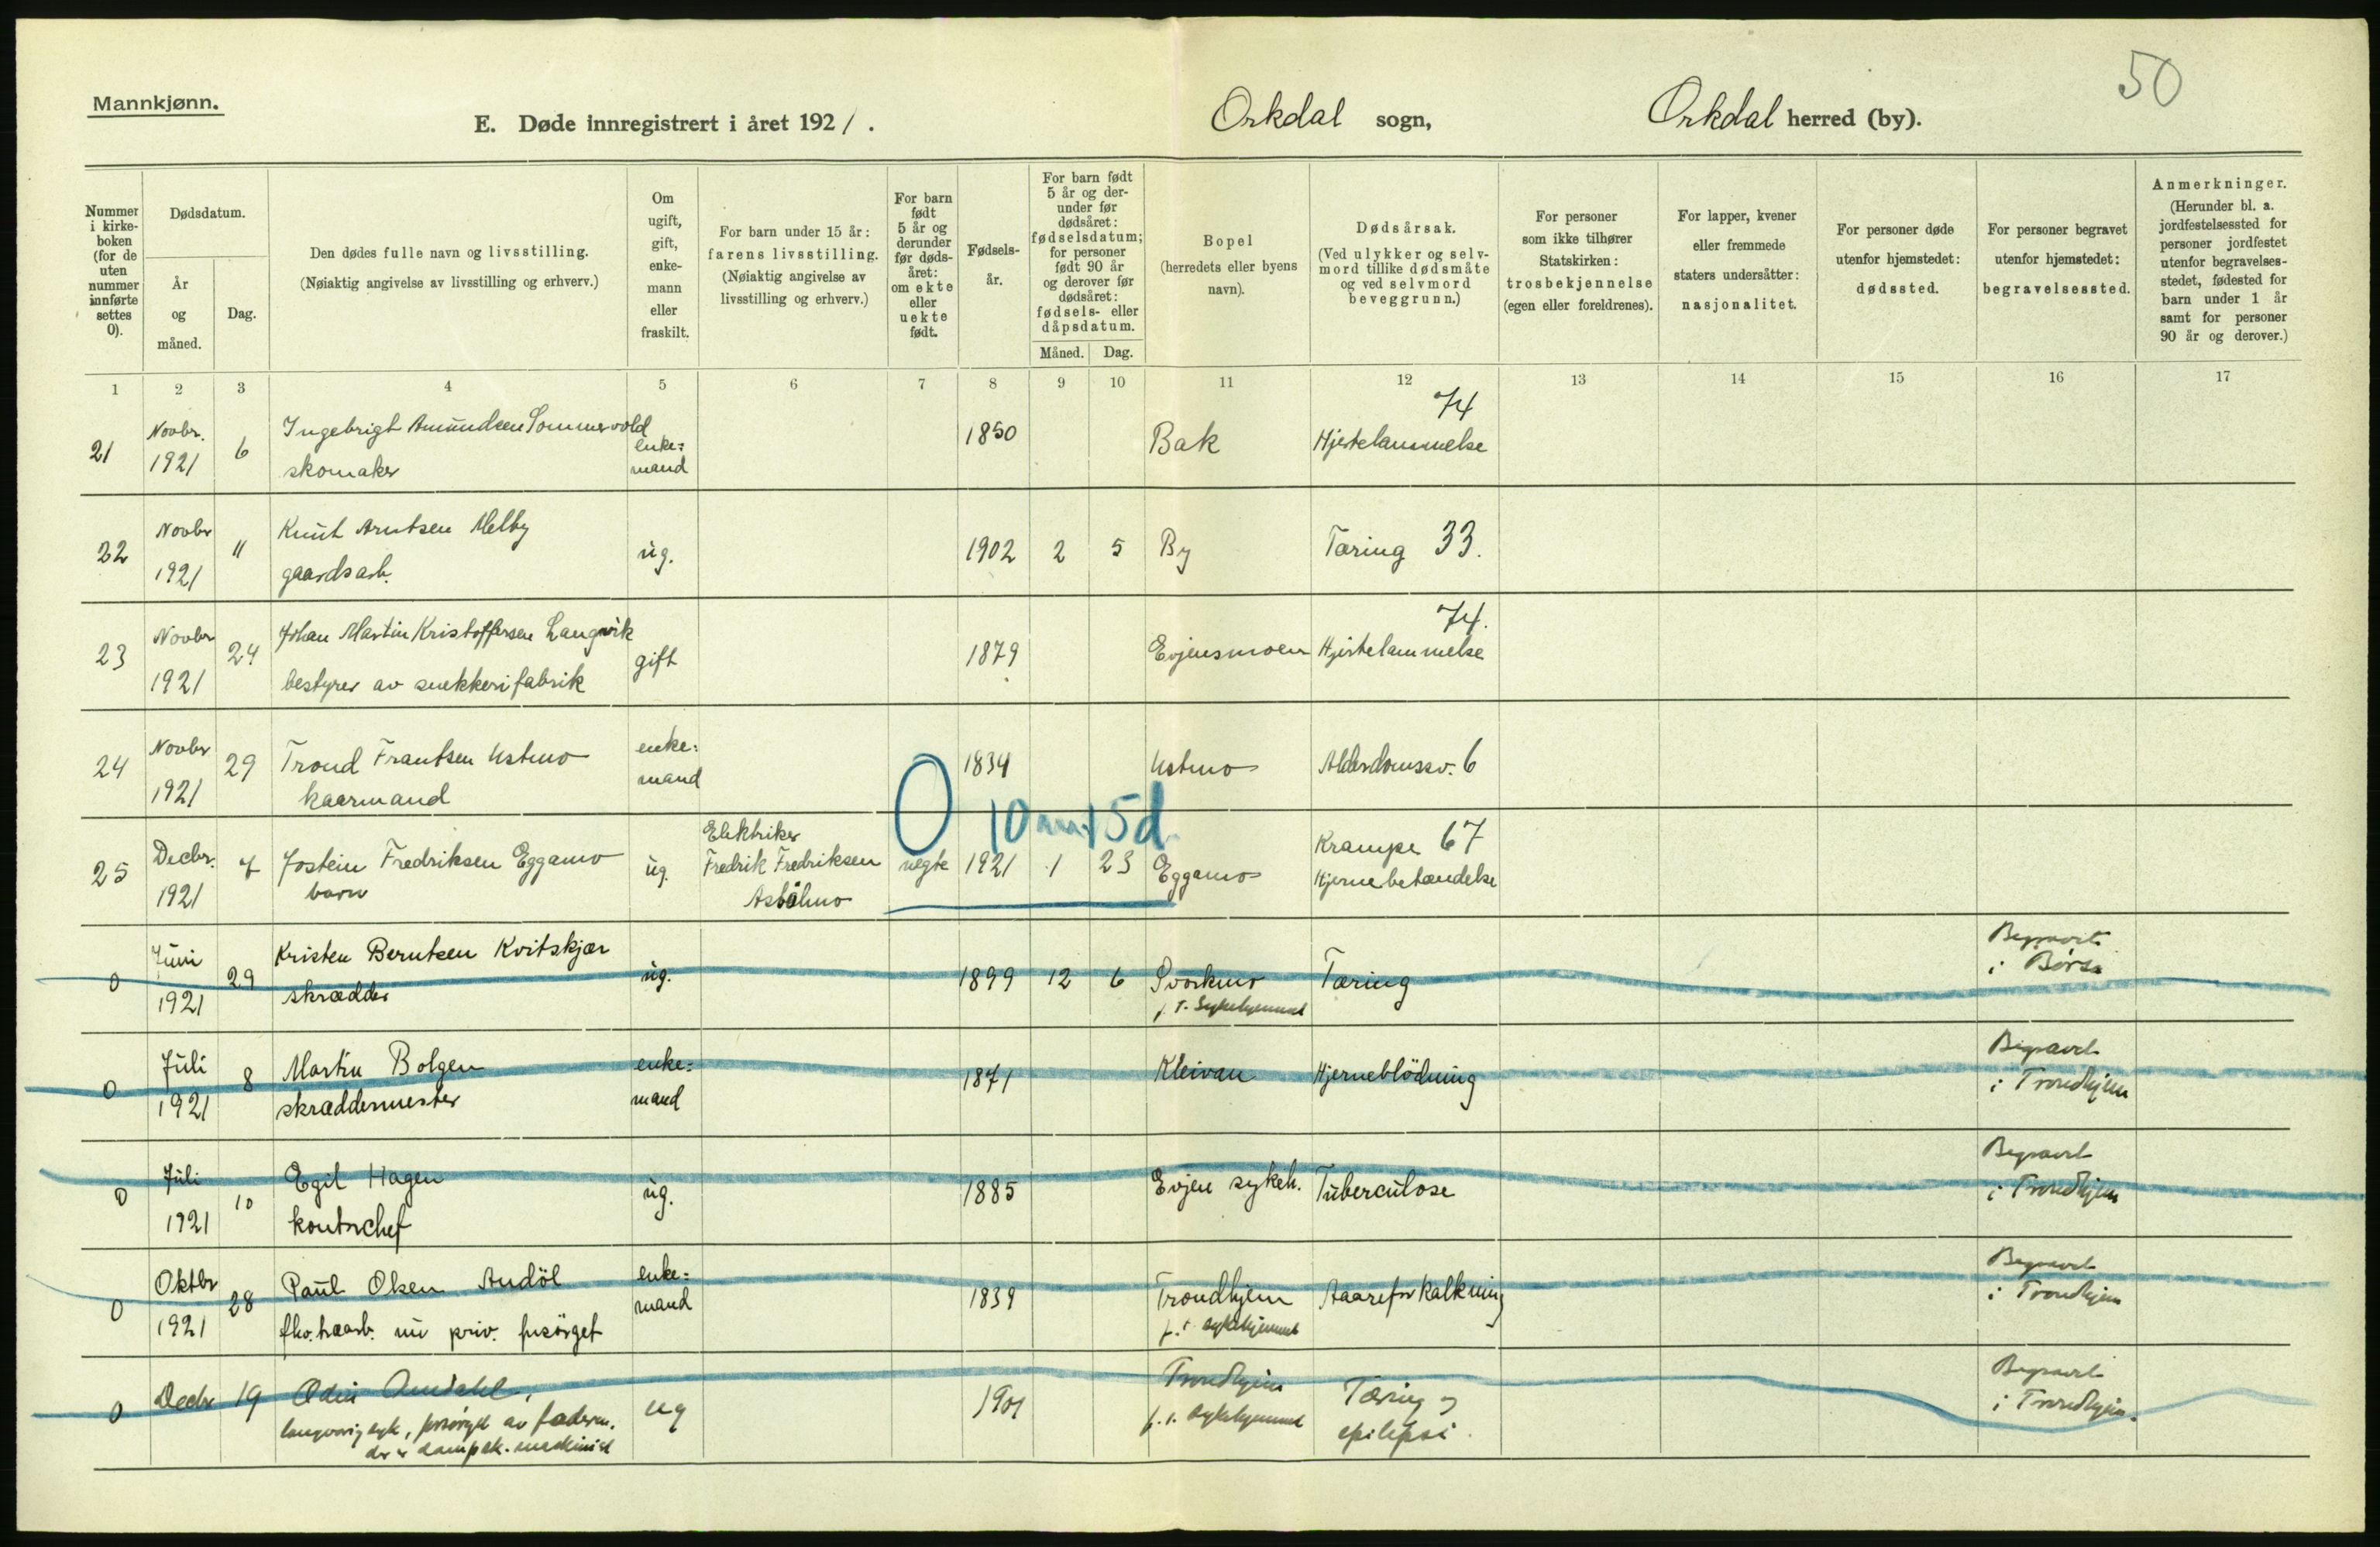 50
Mannkjønn.
E. Døde innregistrert i året 1921.
Orkdal sogn,
Orkdal herred (by).
Nummer i kirkeboken (for de uten nummer innførte settes 0).
Dødsdatum.
År og måned.
Dag.
Den dødes fulle navn og livsstilling.
(Nøiaktig angivelse av livsstilling og erhverv.)
Om ugift, gift, enkemann eller fraskilt.
For barn under 15 år: farens livsstilling.
(Nøiaktig angivelse av livsstilling og erhverv.)
For barn født 5 år og derunder før dødsåret: om ekte eller uekte født.
Fødselsår.
For barn født 5 år og derunder før dødsåret: fødselsdatum; for personer født 90 år og derover før dødsåret: fødsels- eller dåpsdatum.
Måned.
Dag.
Bopel (herredets eller byens navn).
Dødsårsak.
(Ved ulykker og selvmord tillike dødsmåte og ved selvmord beveggrunn.)
For personer som ikke tilhører Statskirken: trosbekjennelse (egen eller foreldrenes).
For lapper, kvener eller fremmede staters undersåtter: nasjonalitet.
For personer døde utenfor hjemstedet: dødssted.
For personer begravet utenfor hjemstedet: begravelsessted.
Anmerkninger.
(Herunder bl. a. jordfestelsessted for personer jordfestet utenfor begravelsesstedet, fødested for barn under 1 år samt for personer 90 år og derover.)
1 2 3 4 5 6 7 8 9 10 11 12 13 14 15 16 17
21 Novbr. 1921 6 Ingebrigt Amundsen Sommervold skomaker enke=mand 1850 Bak 74 Hjertelammelse
22 Novbr 1921 11 Knut Arntsen Melby gaardsarb. ug. 1902 2 5 By Tæring 33.
23 Novbr 1921 24 Johan Martin Kristoffersen Langvik bestyrer av snekkerifabrik gift 1879 Evjensmoen 74. Hjertelammelse
24 Novbr 1921 29 Trond Frantsen Ustmo kaarmand enke:mand 1834 Ustmo Alderdomssv. 6
0 10 m. 15 d.
25 Decbr. 1921 7 Jostein Fredriksen Eggamo barn ug. Elektriker Fredrik Fredriksen Asbölmo uegte 1921 1 23 Eggamo Krampe 67 Hjernebetændelse
0 Juni 1921 29 Kristen Berntsen Kvitskjær skrædder ug. 1899 12 6 Svorkmo p. t. Sykehjemmet Tæring Begravet i Børsa
0 Juli 1921 8 Martin Bolgen skræddermester enke=mand 1871 Kleivan Hjerneblödning Begravet i Trondhjem
0 Juli 1921 10 Egil Hagen kontorchef ug. 1885 Evjen sykeh. Tuberculose Begravet i Trondhjem
0 Oktbr 1921 28 Paul Olsen Andöl fhv. nu priv. forsörget enke=mand 1839 Trondhjem p. t. sykehjemmet Aareforkalkning Begravet i Trondhjem
0 Decbr 19 Odin langvarig syk, forsörget av faderen, der er dampsk. maskinist ug 1901 Trondhjem p. t. sykehjemmet Tæring og epilepsi. Begravet i Trondhjem.